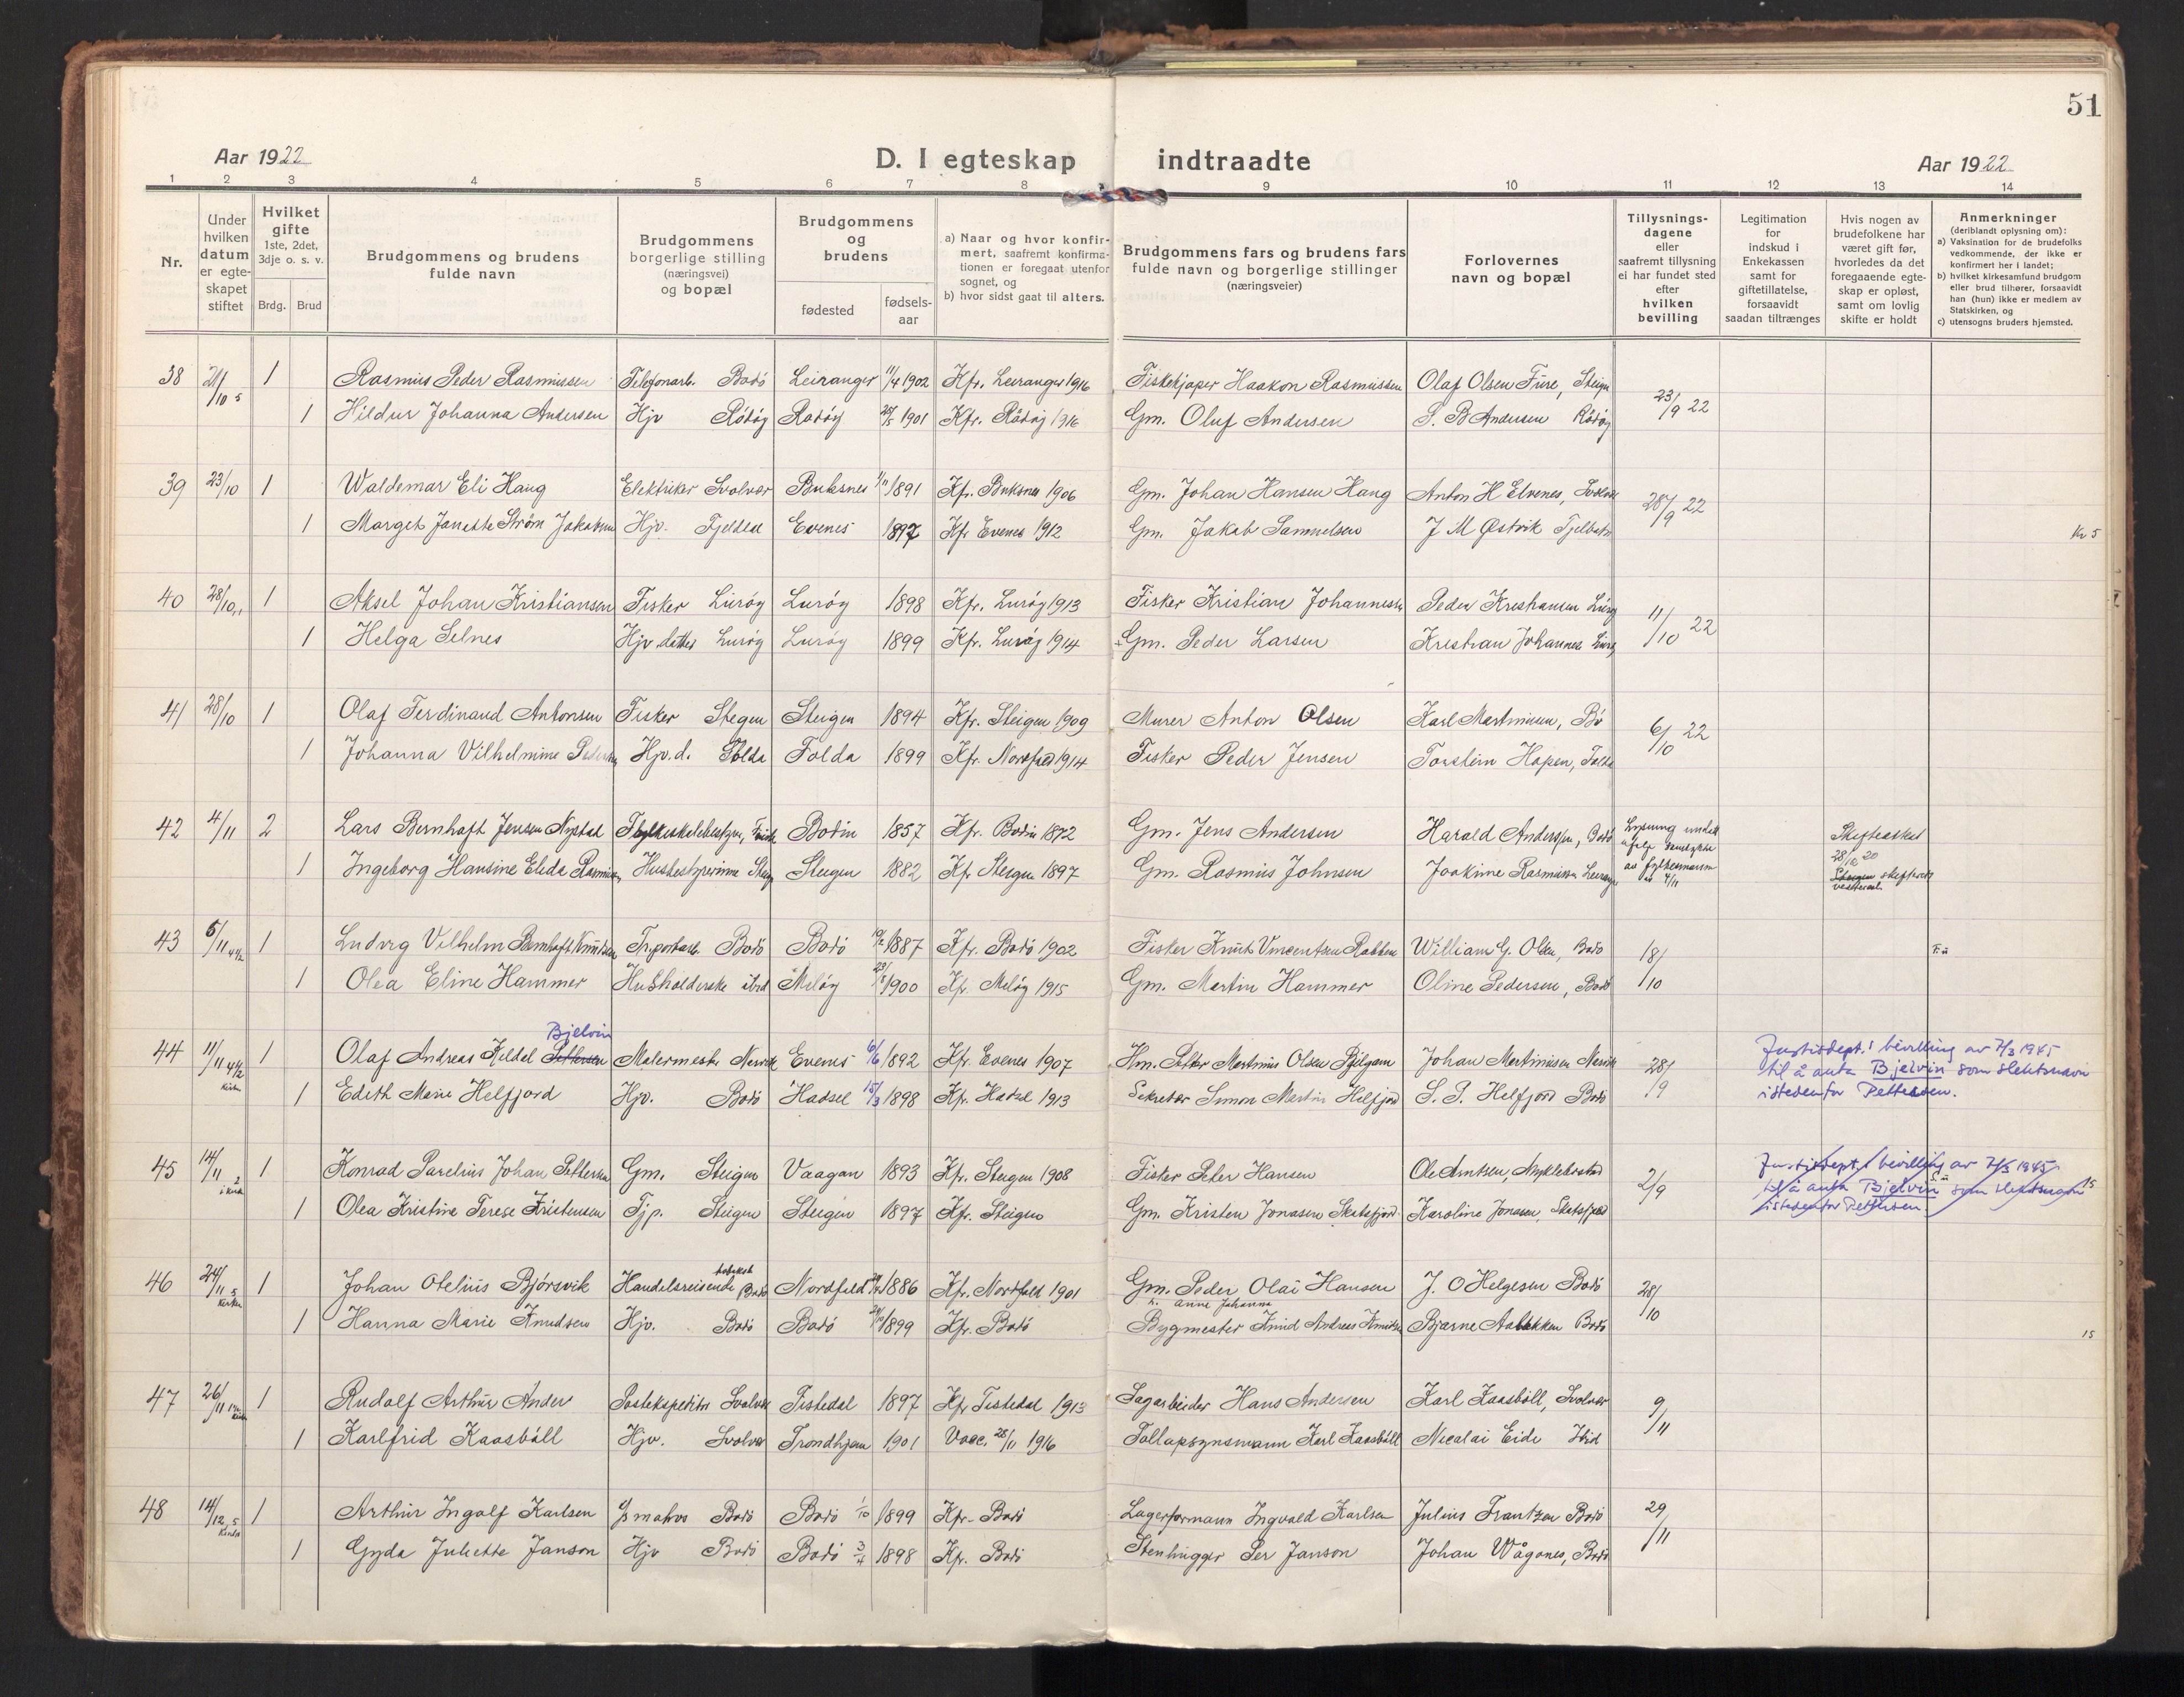 51
Aar 1922
D. I egteskap indtraadte
Aar 1922
1 2 3 4 5 6 7 8 9 10 11 12 13 14
Nr.
Under hvilken datum er egteskapet stiftet
Hvilket gifte 1ste, 2det, 3dje o. s. v.
Brdg. Brud
Brudgommens og brudens fulde navn
Brudgommens borgerlige stilling (næringsvei) og bopæl
Brudgommens og brudens
fødested
fødsels-aar
a) Naar og hvor konfirmert, saafremt konfirmationen er foregaat utenfor sognet, og
b) hvor sidst gaat til alters.
Brudgommens fars og brudens fars fulde navn og borgerlige stillinger (næringsveier)
Forlovernes navn og bopæl
Tillysningsdagene eller saafremt tillysning ei har fundet sted efter hvilken bevilling
Legitimation for indskud i Enkekassen samt for giftetillatelse, forsaavidt saadan tiltrænges
Hvis nogen av brudefolkene har været gift før, hvorledes da det foregaaende egteskap er opløst, samt om lovlig skifte er holdt
Anmerkninger (deriblandt oplysning om):
a) Vaksination for de brudefolks vedkommende, der ikke er konfirmert her i landet;
b) hvilket kirkesamfund brudgom eller brud tilhører, forsaavidt han (hun) ikke er medlem av Statskirken, og
c) utensogns bruders hjemsted.
38 21/10 5 1 Rasmus Peder Rasmussen Telefonarb. Bodö Leiranger 11/4 1902 Kfr. Leiranger 1916 Fiskekjøper Haakon Rasmussen Olaf Olsen Fure, Steigen 23/9 22
1 Hildur Johanna Andersen Hjv Rödøy Rødøy 1901 Kfr. Rödöy 1916 Gm. Oluf Andersen S. B Andersen Rödöy
39 23/10 1 Waldemar Eli Haug Elektriker Svolvær Buksnes 1891 Kfr. Buksnes 1906 Gm. Johan Hansen Haug Anton H Elvenes, Svolvær 28/9 22
1 Marget Janette Strøm Jakobsen Hjv. Fjeldal Evenes 1897 Kfr Evenes 1912 Gm. Jakob Samuelsen J M Østvik Kr 5
40 28/10 1 Aksel Johan Kristiansen Fisker Luröy Luröy 1898 Kfr. Luröy 1913 Fisker Kristian Johannessen Peder Kristiansen Luröy 11/10 22
1 Helga Selnes Hjv. datter Luröy Luröy 1899 Kfr. Luröy 1914 Gm. Peder Larsen Kristian Johannes Luröy
41 28/10 1 Olaf Ferdinand Antonsen Fisker Stegen Steigen 1894 Kfr. Steigen 1909 Murer Anton Olsen Karl Martinusen, Bö 6/10 22
1 Johanna Vilhelmine Pedersen Hjv.d. Folda Folda 1899 Kfr. Nordfold 1914 Fisker Peder Jensen Torstein Hopen, Folda
42 4/11 2 Lars Bernhoft Jensen Nystad Bodin 1857 Kfr. Bodin 1872 Gm. Jens Andersen Harald Anderssen, Bodö Lysning undlatt
1 Ingeborg Hansine Elida Rasmussen Husbestyrerinne Steigen Steigen 1882 Kfr Steigen 1897 Gm. Rasmus Johnsen Joakime Rasmussen Leiranger av fylkesmannen 4/11 Skifteattest 28/10 20 skifterett
43 5/11 4½ 1 Ludvig Vilhelm Bernhoft Knutsen Trsportarb. Bodö Bodö 1887 Kfr. Bodö 1902 Fisker Knut Vincentsen Rabben William G. Olsen, Bodö 18/10
1 Olea Eline Hammer Husholderske Melöy 1900 Kfr. Melöy 1915 Gm. Martin Hammer Oline Pedersen, Bodö
Bjelvin
44 11/11 4½ Kirken 1 Olaf Andreas Kjeldal Pettersen Malermester Narvik Evenes 6/6 1892 Kfr. Evenes 1907 Hm. Petter Martinus Olsen Johan Martinussen Narvik 28/9 Justisdept.s bevilling av 7/3 1945
til å anta Bjelvin som slektsnavn
istedenfor Pettersen.
1 Edith Marie Helfjord Hjv. Bodö Hadsel 15/3 1898 Kfr. Hadsel 1913 Sekretær Simon Martin Helfjord S. P. Helfjord Bodö
45 14/11 2 i kirk 1 Konrad Parelius Johan Pettersen Gm. Steigen Vaagan 1893 Kfr. Steigen 1908 Fisker Peter Hansen Ole Arntsen, Myklebostad 2/9 Justisdept.s bevilling av 7/3 1945
til å anta Bjelvin som slektsnavn 15
istedenfor Pettersen
1 Olea Kristine Terese Kristensen Tjp. Steigen Steigen 1897 Kfr. Steigen Gm. Kristen Jonasen Skotsfjord Karoline Jonasen, Skotsfjord
46 24/11 5 Kirken 1 Johan Otelius Bjørsvik Handelsreisende Bodö Nordfold 1886 Kfr. Nordfold 1901 Gm. Peder Olai Hansen J. O Helgesen Bodö 28/10
h. Anne Johanna
1 Hanna Marie Knudsen Hjv. Bodö Bodö 1899 Kfr. Bodö Bygmester Knud Andreas Knudsen Bjarne Aabakken Bodö 15
47 26/11 1 Rudolf Arthur Ander Postekspeditør Svolvær Tistedal 1897 Kfr Tistedal 1913 Sagarbeider Hans Andersen Karl Kaasböll, Svolvær 9/11
1 Karlfrid Kaasböll Hjv. Svolvær Trondhjem 1901 Vaac. 28/11 1916 Tollopsynsmann Karl Kaasböll Nicolai Eide Ibid
48 14/12 5 Kirken 1 Arthur Ingolf Karlsen Bodö Bodö 1/10 1899 Kfr. Bodö Lagerformann Ingvald Karlsen Julius Frantzen Bodö 29/11
1 Gyda Juliette Janson Hjv Bodö Bodö 3/4 1898 Kfr. Bodö Stenhugger Per Janson Johan Vågønes, Bodö